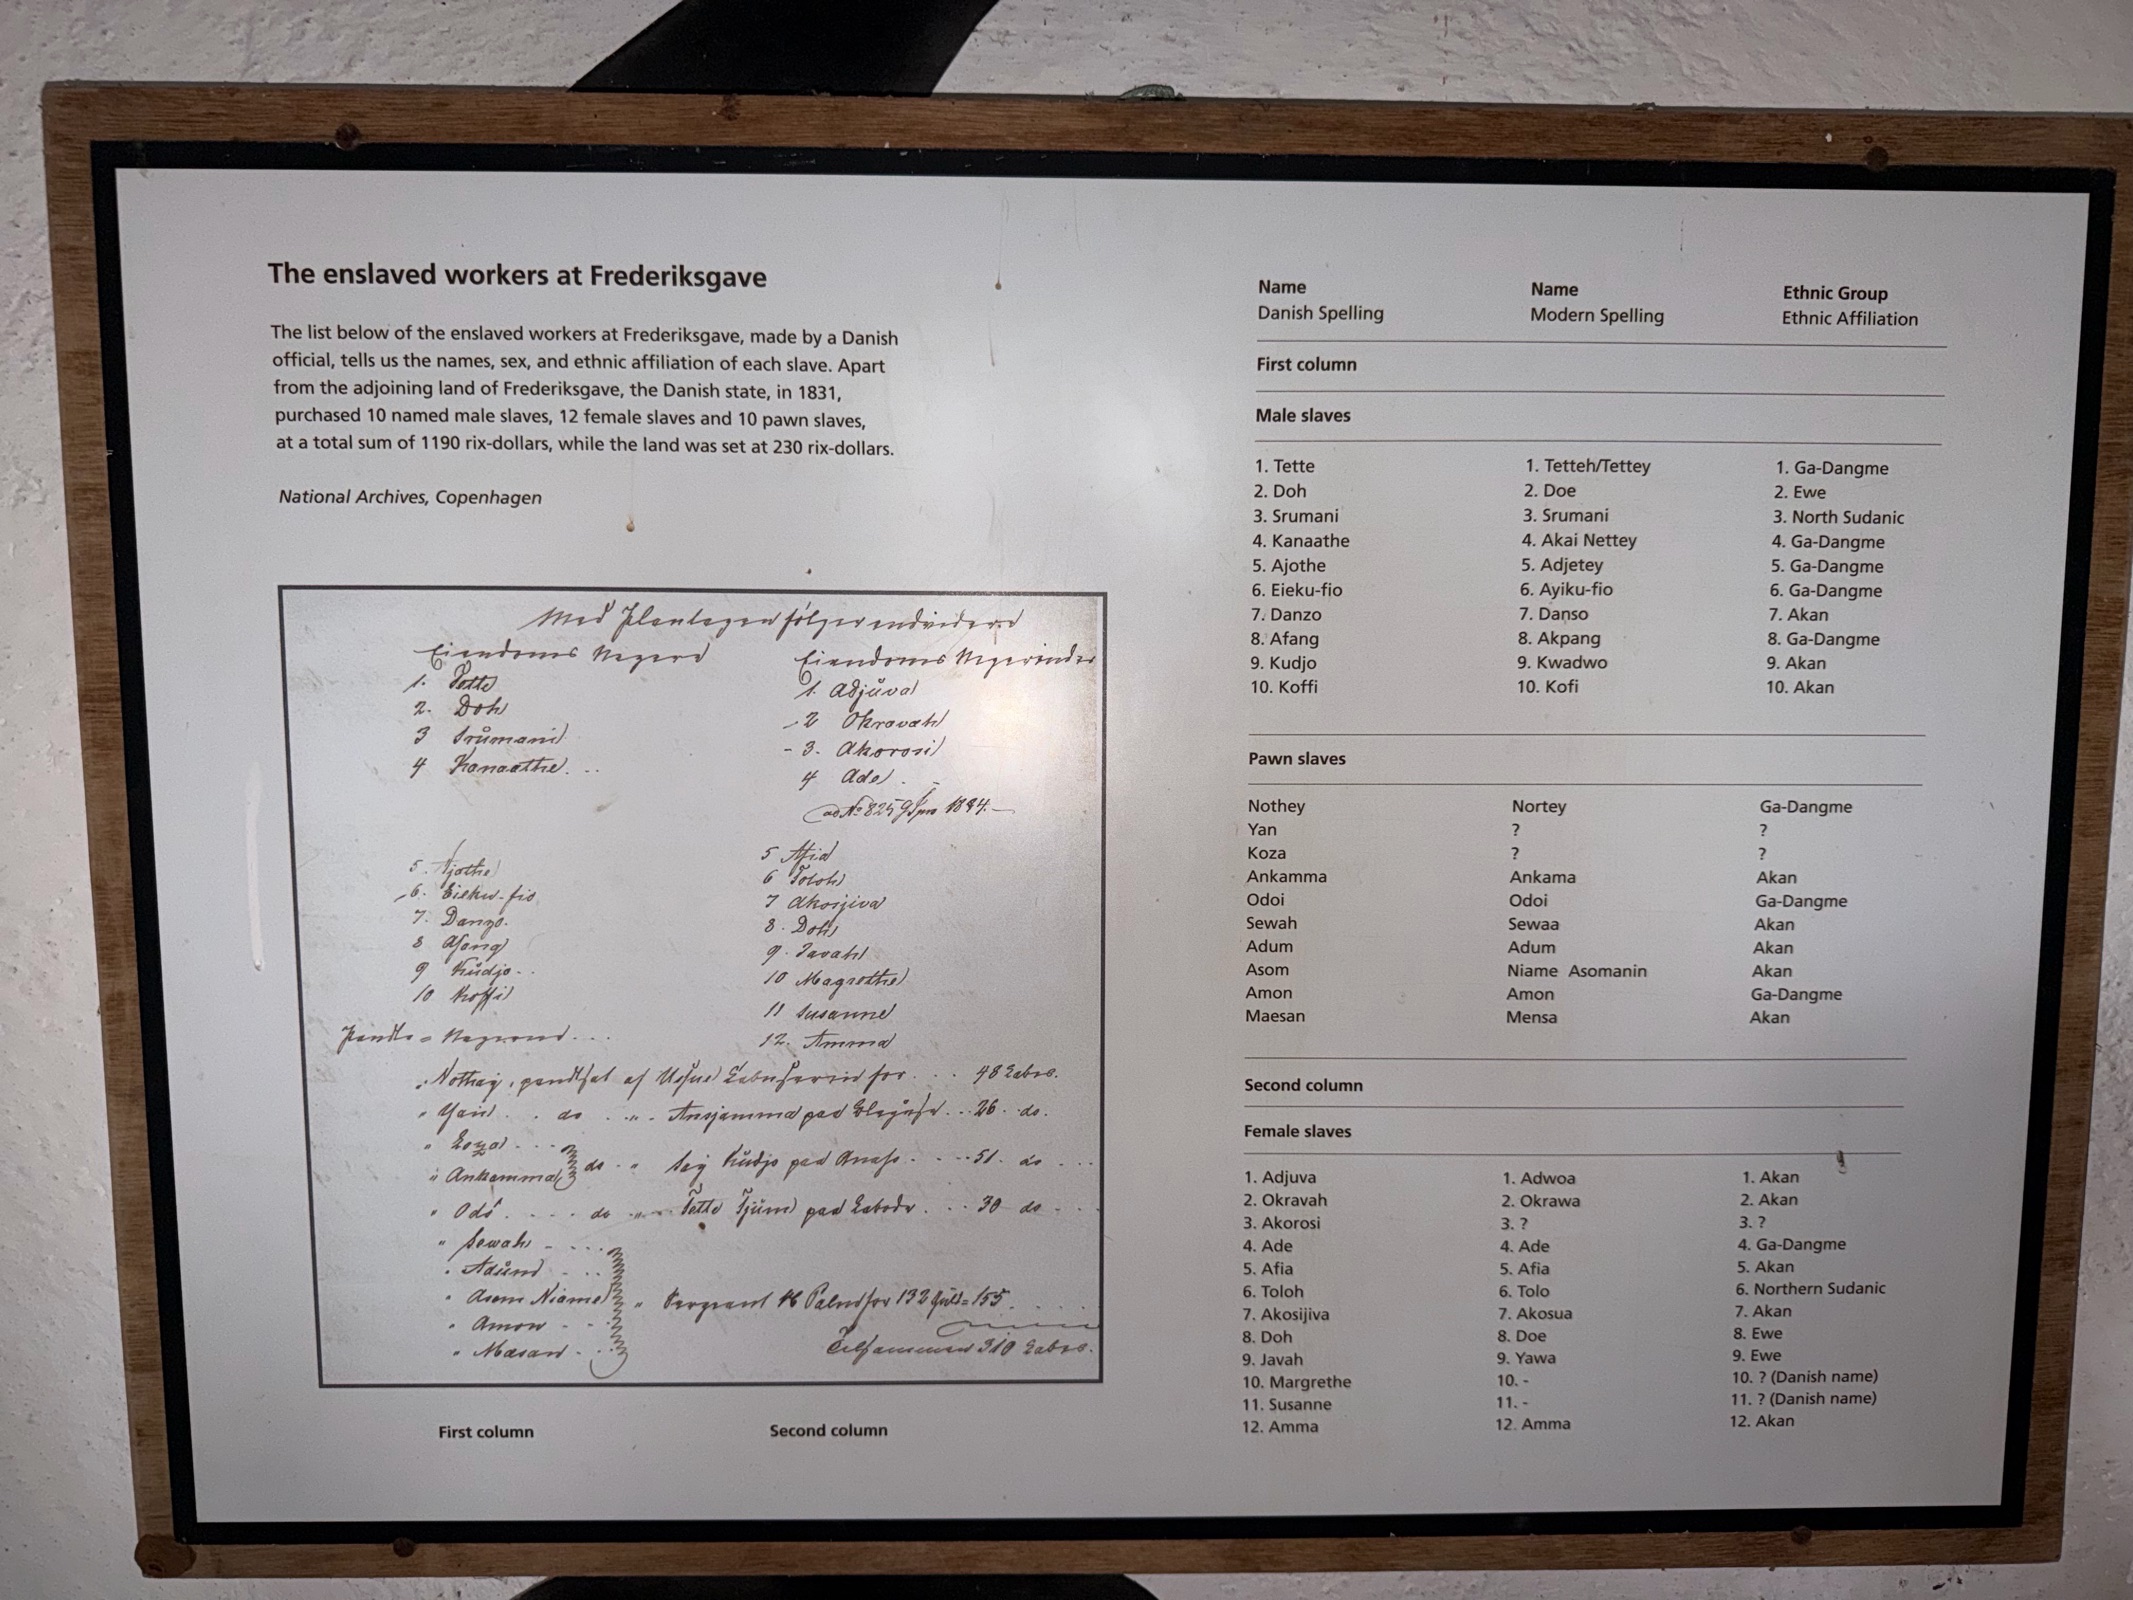 The enslaved workers at Frederiksgave
The list below of the enslaved workers at Frederiksgave, made by a Danish
official, tells us the names, sex, and ethnic affiliation of each slave. Apart
from the adjoining land of Frederiksgave, the Danish state, in 1831,
purchased 10 named male slaves, 12 female slaves and 10 pawn slaves,
at a total sum of 1190 rix-dollars, while the land was set at 230 rix-dollars.
National Archives, Copenhagen
Med Plantagen følger endvidere
Eiendoms Negere
1. Tette
2. Doh
3 Srůmani
4 Kanaathe. ..
5. Ajothe
6. Eieku-fio
7. Danzo.
8 Afang
9 Kůdjo..
10 Koffi
Eiendoms Negerinder
1. Adjůva
2 Okravah
3. Akorosi
4 Ade
5 Afia
6 Toloh
7 Akosijiva
8. Doh
9. Javah
10 Magrethe
11 Susanne
12. Amma
48
26. do.
Ankamma do 51. do
do Tette 30 do
Sewah
Adům
Asom Niame Sergeant 132 = 155
Amon
Tilsammen 310
First column
Second column
Name Name Ethnic Group
Danish Spelling Modern Spelling Ethnic Affiliation
First column
Male slaves
1. Tette 1. Tetteh/Tettey 1. Ga-Dangme
2. Doh 2. Doe 2. Ewe
3. Srumani 3. Srumani 3. North Sudanic
4. Kanaathe 4. Akai Nettey 4. Ga-Dangme
5. Ajothe 5. Adjetey 5. Ga-Dangme
6. Eieku-fio 6. Ayiku-fio 6. Ga-Dangme
7. Danzo 7. Danso 7. Akan
8. Afang 8. Akpang 8. Ga-Dangme
9. Kudjo 9. Kwadwo 9. Akan
10. Koffi 10. Kofi 10. Akan
Pawn slaves
Nothey Nortey Ga-Dangme
Yan ? ?
Koza ? ?
Ankamma Ankama Akan
Odoi Odoi Ga-Dangme
Sewah Sewaa Akan
Adum Adum Akan
Asom Niame Asomanin Akan
Amon Amon Ga-Dangme
Maesan Mensa Akan
Second column
Female slaves
1. Adjuva 1. Adwoa 1. Akan
2. Okravah 2. Okrawa 2. Akan
3. Akorosi 3. ? 3. ?
4. Ade 4. Ade 4. Ga-Dangme
5. Afia 5. Afia 5. Akan
6. Toloh 6. Tolo 6. Northern Sudanic
7. Akosijiva 7. Akosua 7. Akan
8. Doh 8. Doe 8. Ewe
9. Javah 9. Yawa 9. Ewe
10. Margrethe 10. - 10. ? (Danish name)
11. Susanne 11. - 11. ? (Danish name)
12. Amma 12. Amma 12. Akan